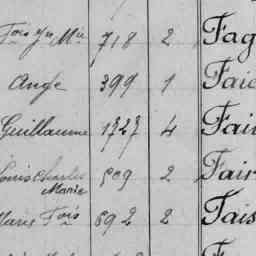 718 2 Fag
Ange 399 1 Faic
Guillaume 1727 4 Fai
Louis Charles Marie 509 2 Fair
Marie Fois 592 2 Fais